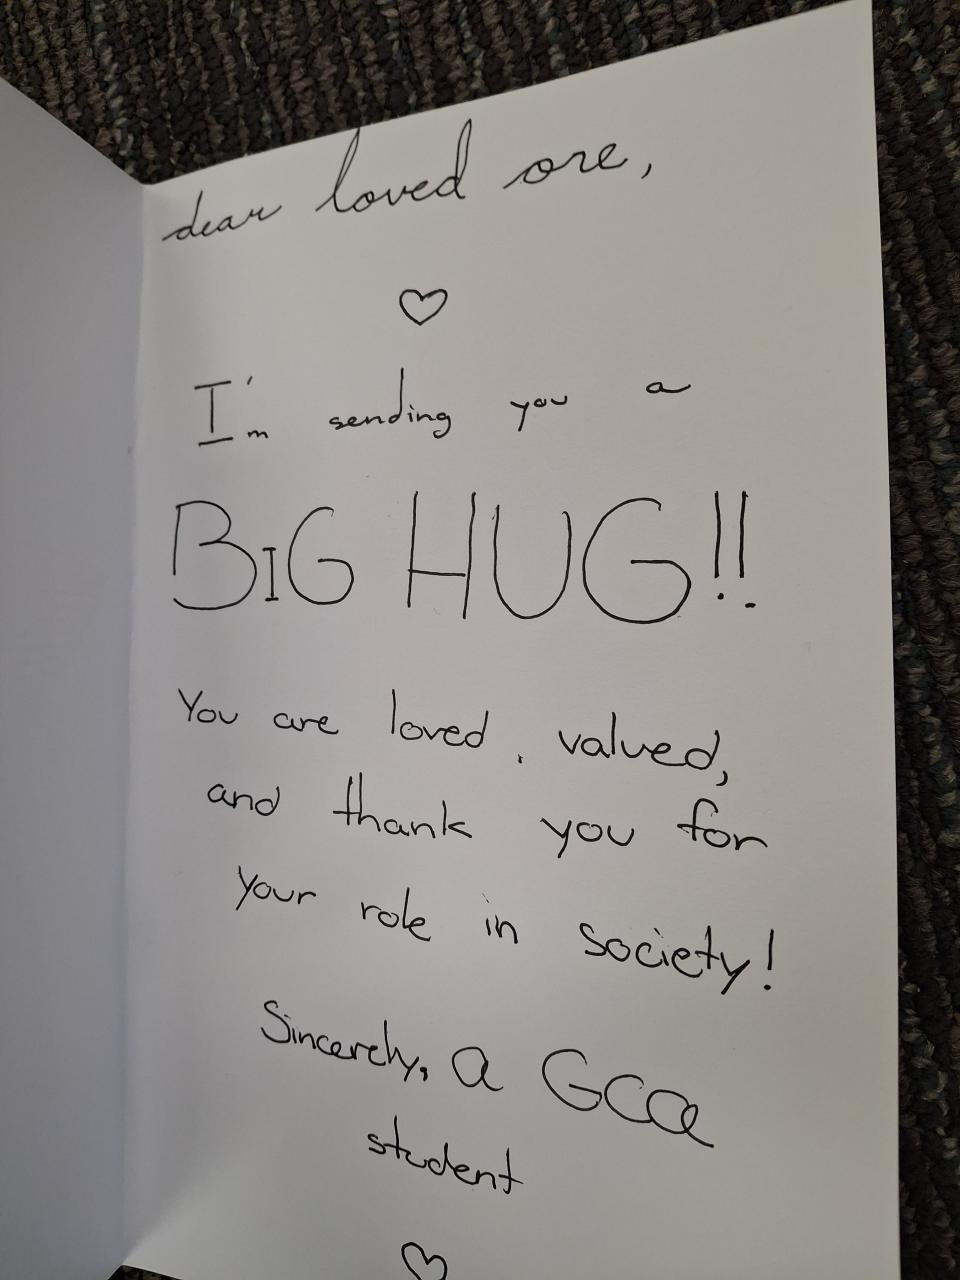 dear loved one,
♡
I'm sending you a
BIG HUG!!
You are loved, valued,
and thank you for
your role in society!
Sincerely, a GCa
student
♡